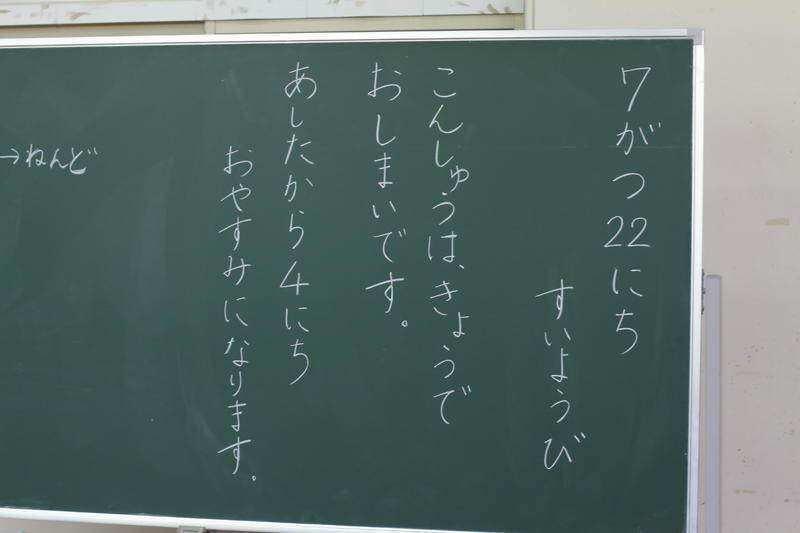 7がつ22にち
すいようび
こんしゅうは、きょうで
おしまいです。
あしたから4にち
おやすみになります。
→ねんど